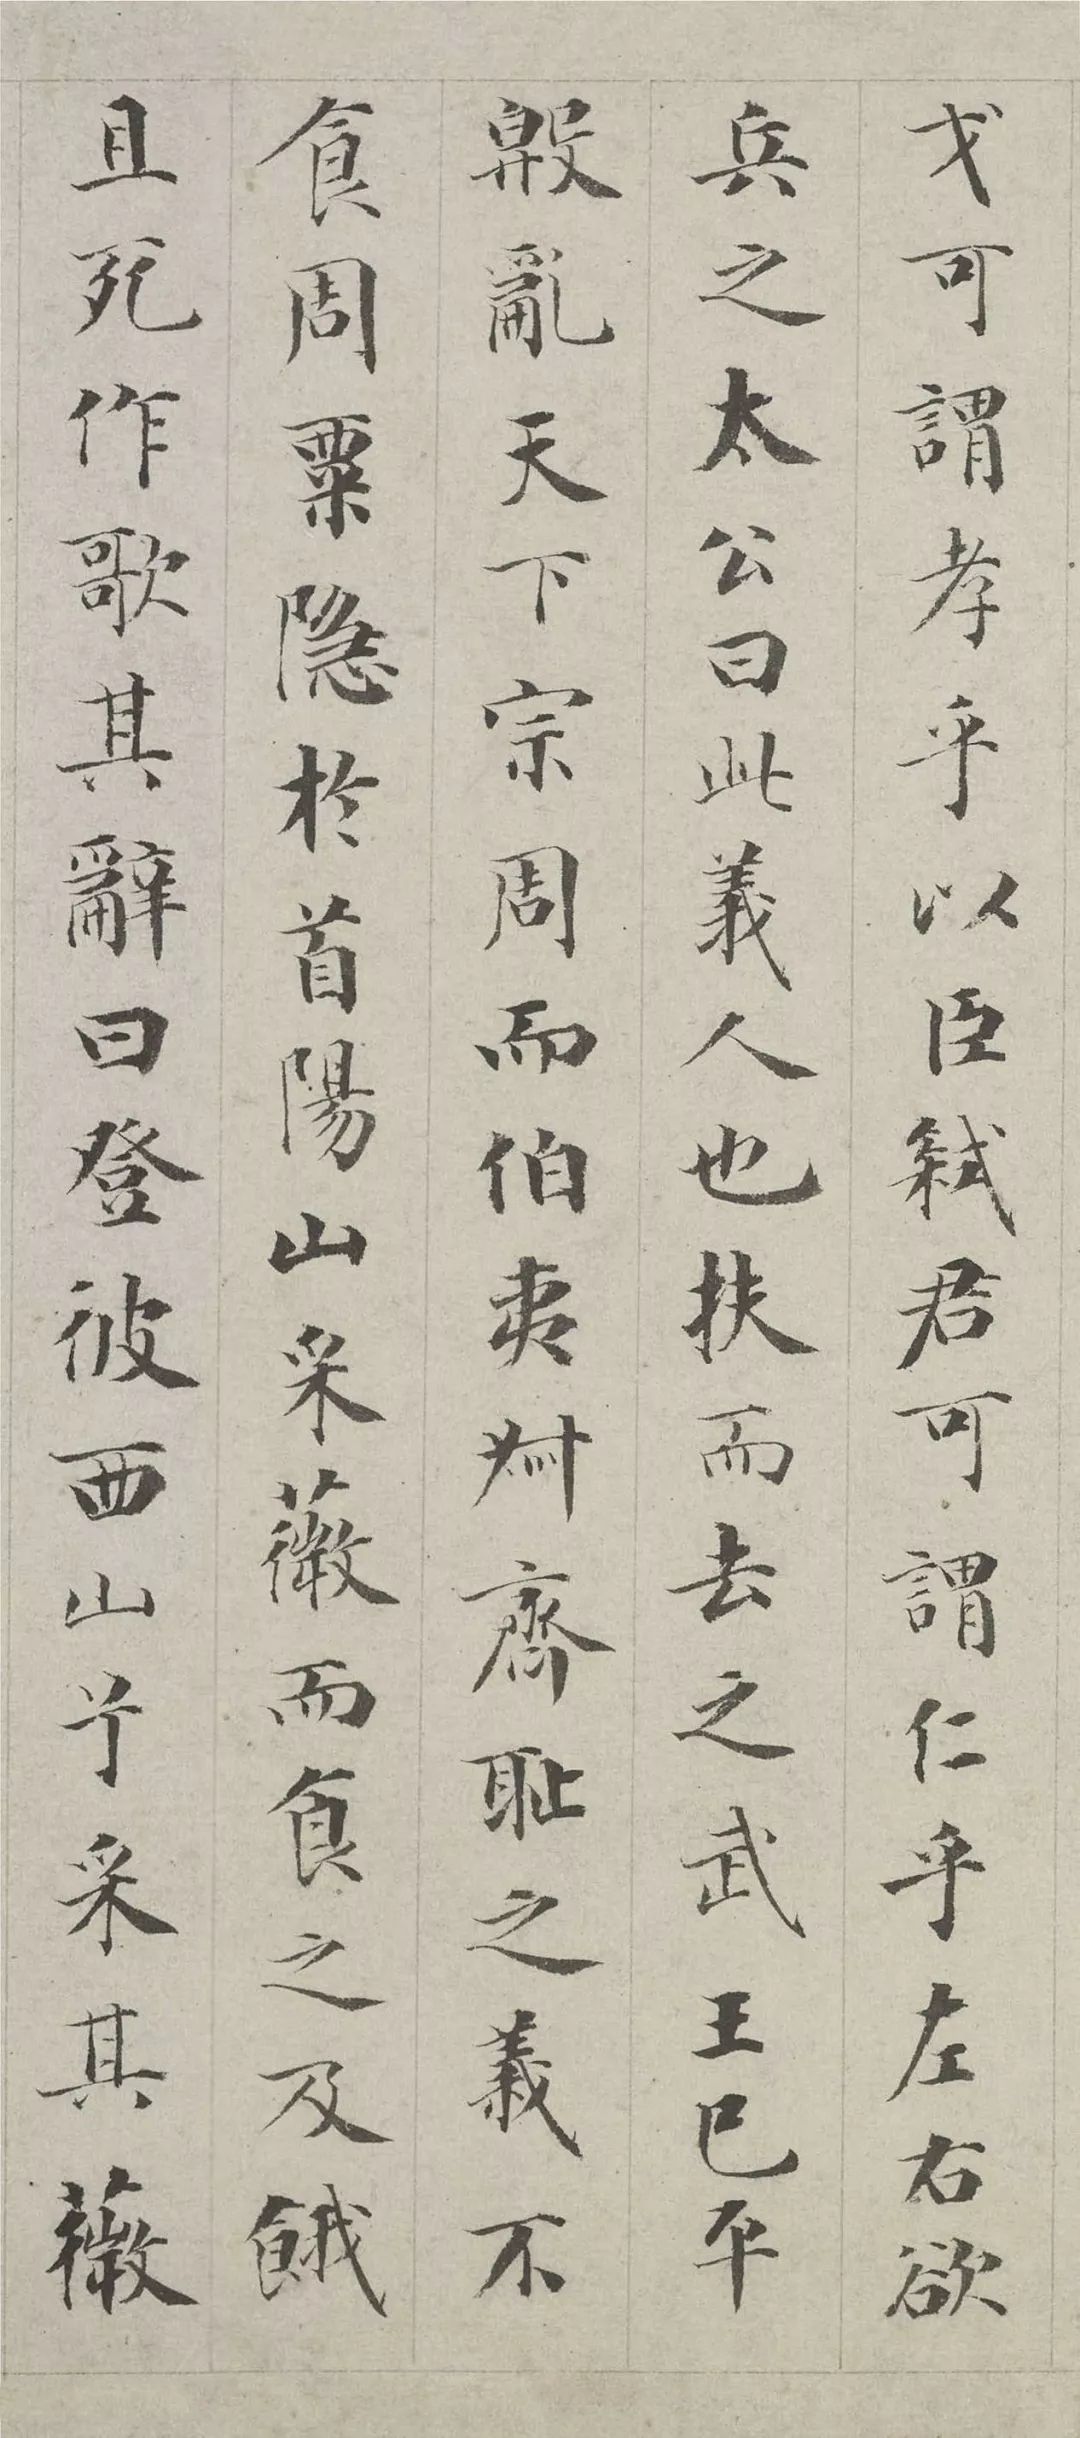 戈可謂孝乎以臣弒君可謂仁乎左右欲
兵之太公曰此義人也扶而去之武王已平
殷亂天下宗周而伯夷叔齊恥之義不
食周粟隱於首陽山采薇而食之及餓
且死作歌其辭曰登彼西山兮采其薇